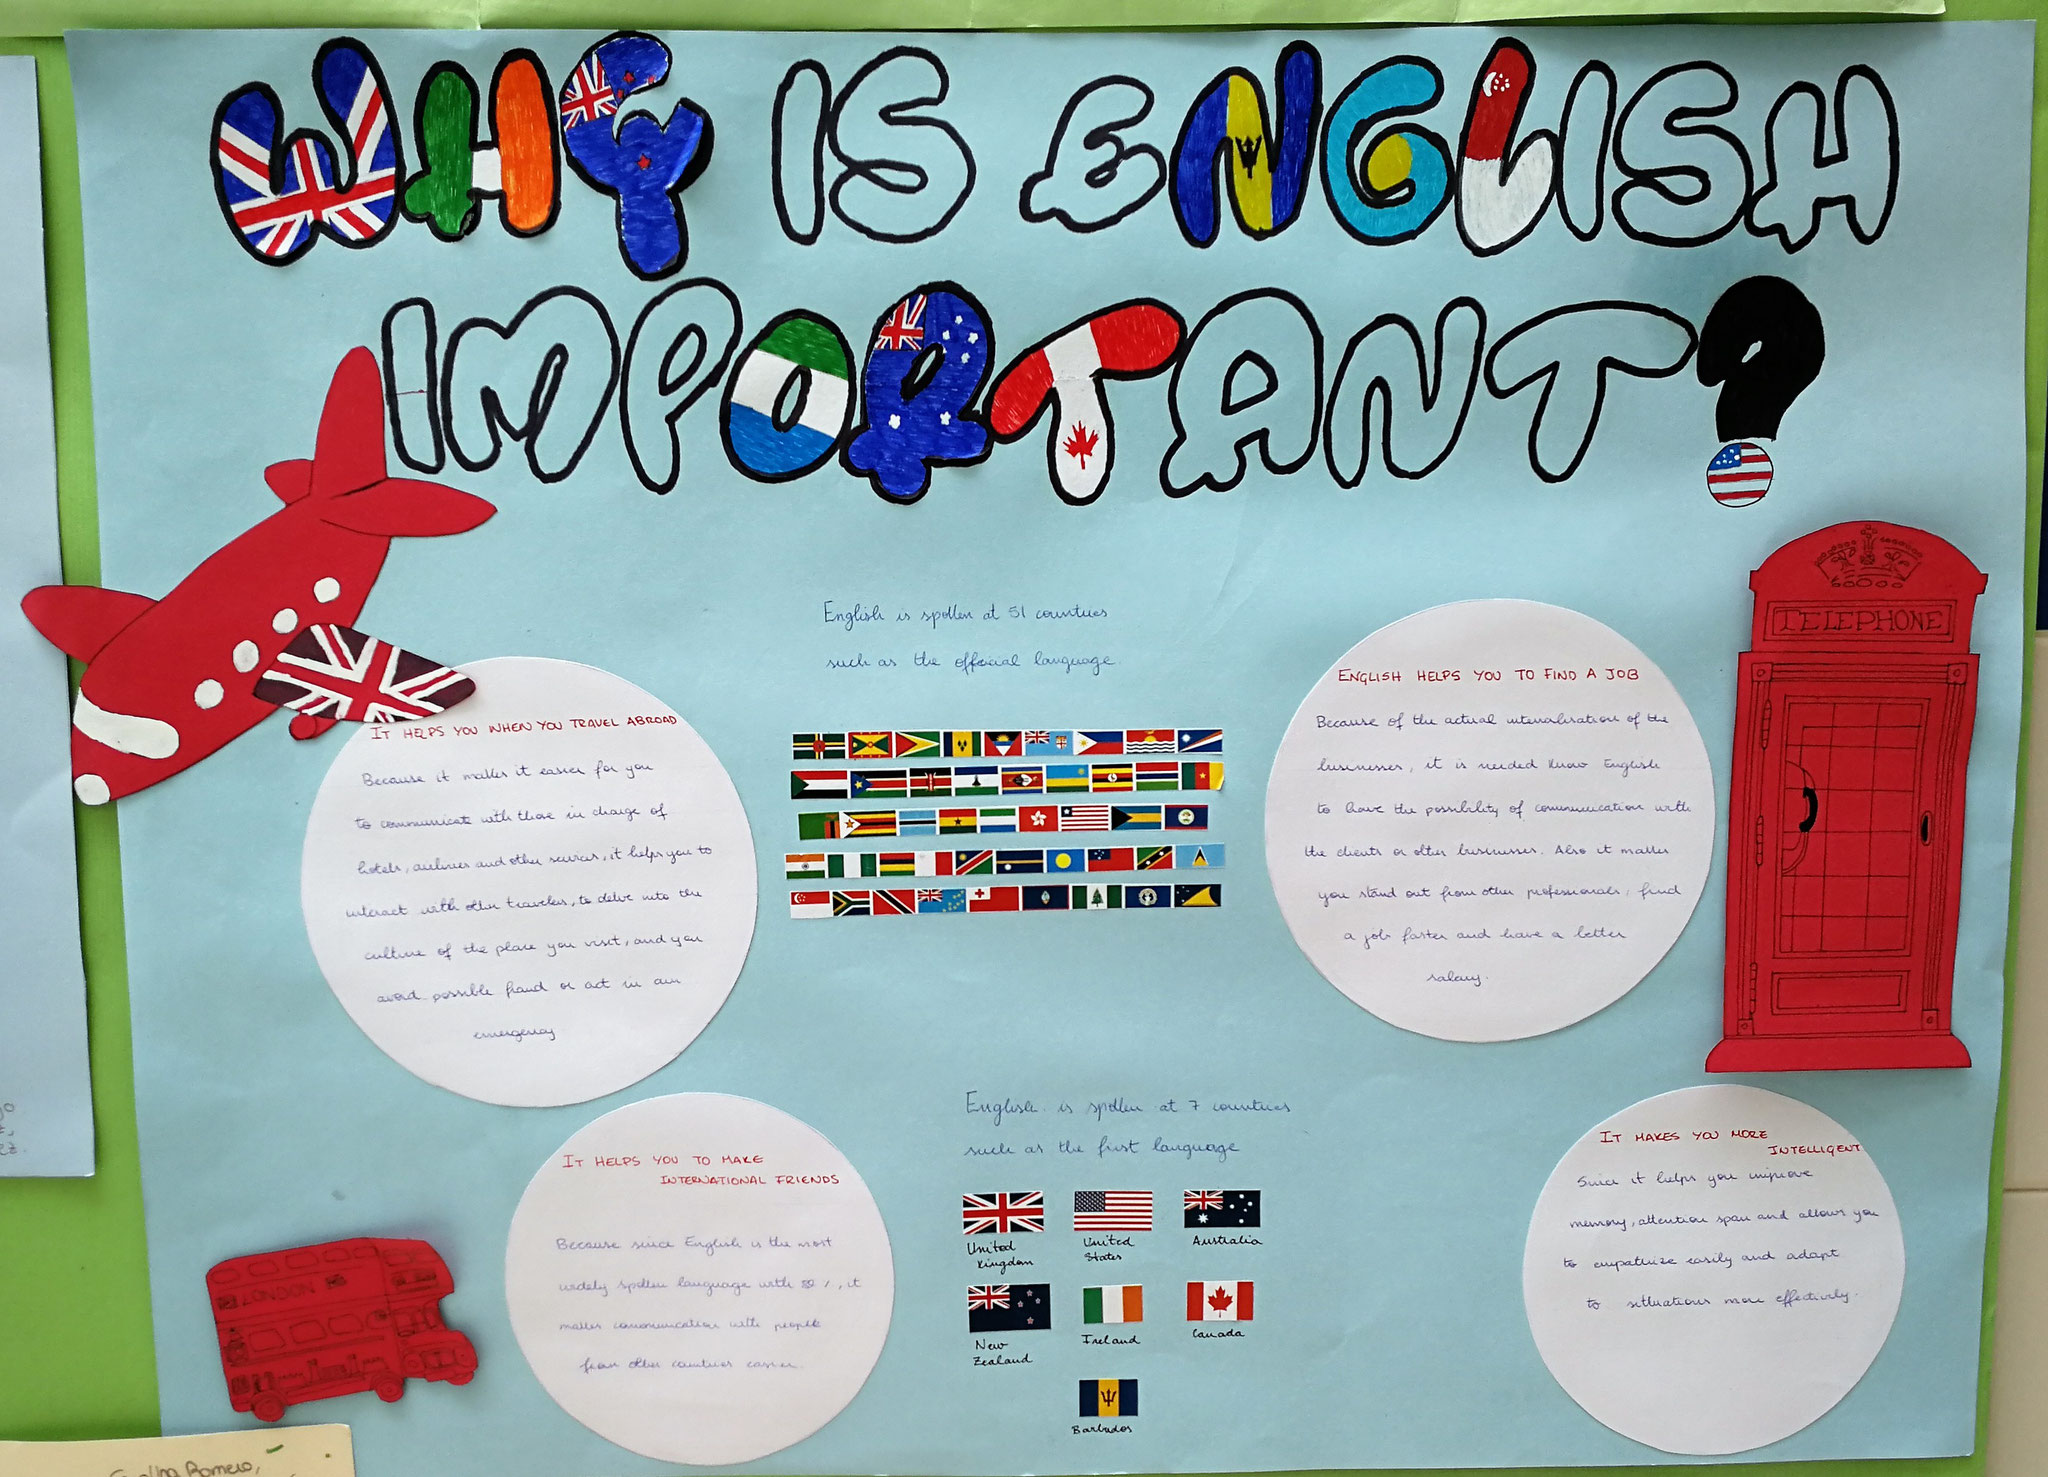 WHY IS ENGLISH
IMPORTANT?
English is spoken at 51 countries
such as the official language.
IT HELPS YOU WHEN YOU TRAVEL ABROAD
Because it makes it easier for you
to communicate with those in charge of
hotels, airlines and other services, it helps you to
interact with other travelers, to delve into the
culture of the place you visit, and you
avoid possible fraud or act in an
emergency
ENGLISH HELPS YOU TO FIND A JOB
Because of the actual internalisation of the
businesses, it is needed know English
to have the possibility of communication with
the clients or other businesses. Also it makes
you stand out from other professionals, find
a job faster and have a better
salary.
TELEPHONE
English is spoken at 7 countries
such as the first language
United
Kingdom
United
States
Australia
New
Zealand
Ireland
Canada
Barbados
IT HELPS YOU TO MAKE
INTERNATIONAL FRIENDS
Because since English is the most
widely spoken language with %, it
makes communication with people
from other countries easier.
IT MAKES YOU MORE
INTELLIGENT
Since it helps you improve
memory, attention span and allows you
to empathize easily and adapt
to situations more effectively.
LONDON
Romero,